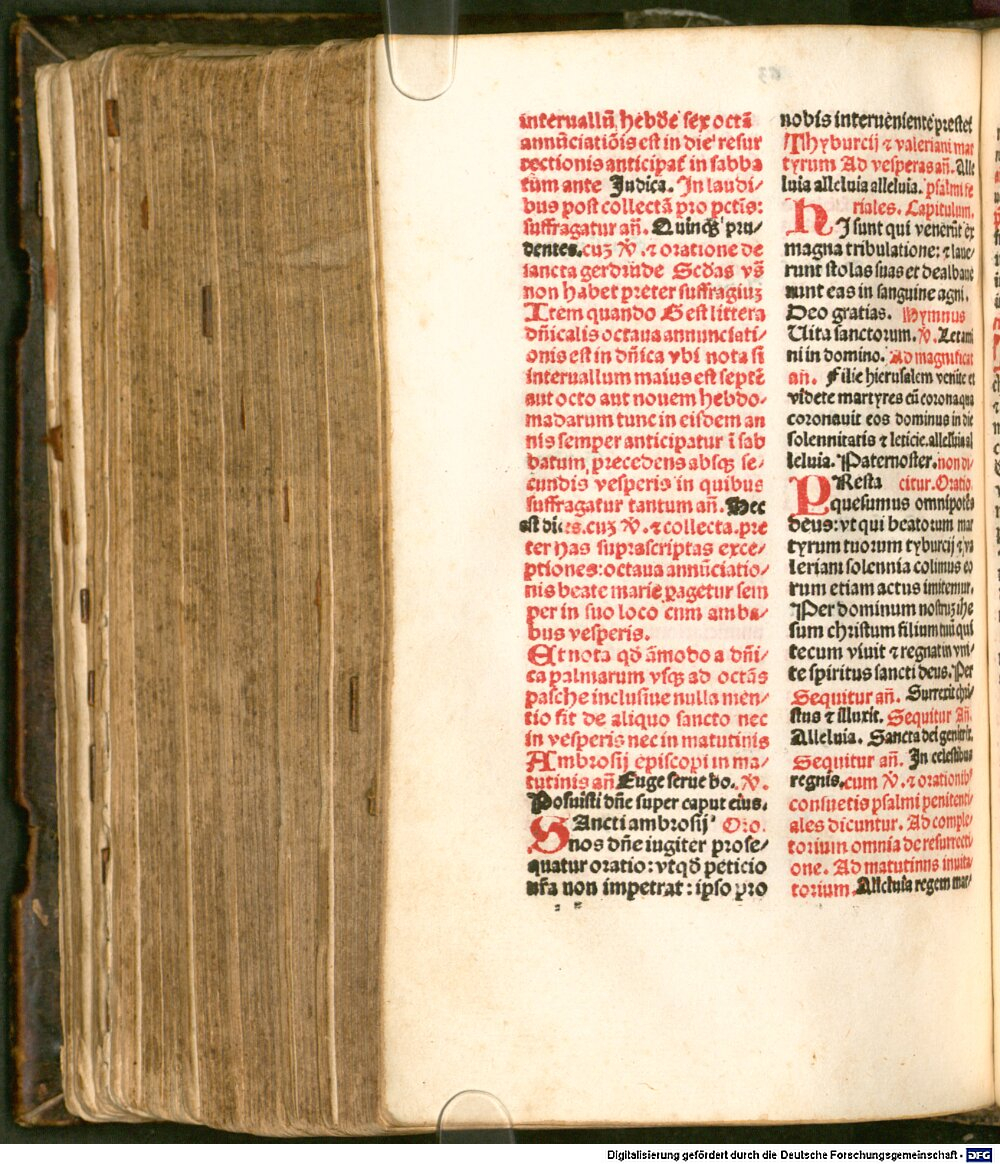 interuallũ hebdẽ sex octã
annũciatiõis est in die resur
rectionis anticipat̃ in sabba
tum ante Judica. In laudi⸗
bus post collectã pro pctis:
suffragatur añ. Quinqꝫ pru⸗
dentes. cuꝫ ꝟ. ⁊ oratione de
sancta gerdrude Scdas vs̃
non habet preter suffragiuꝫ
Item quando G est littera
dñicalis octaua annunciati⸗
onis est in dñica vbi nota si
interuallum maius est septẽ
aut octo aut nouem hebdo⸗
madarum tunc in eisdem an
nis semper anticipatur ĩ sab
batum precedens absqꝫ se⸗
cundis vesperis in quibus
suffragatur tantum añ. Hec
est dies. cuꝫ ꝟ. ⁊ collecta. pre
ter has suprascriptas exce⸗
ptiones: octaua annũciatio⸗
nis beate marie pagetur sem
per in suo loco cum amba⸗
bus vesperis.
Et nota qď ãmodo a dñi⸗
ca palmarum vsqꝫ ad octãs
pasche inclusiue nulla men⸗
tio fit de aliquo sancto nec
in vesperis nec in matutinis
Ambrosij episcopi in ma⸗
tutinis añ Euge serue bo. ꝟ.
Posuisti dñe super caput eius.
SAncti ambrosij Oro.
nos dñe iugiter prose⸗
quatur oratio: vtqď peticio
nr̃a non impetrat: ipso pro
nobis interueniente prestet
Thyburcij ⁊ valeriani mar
tyrum Ad vesperas añ. Alle
luia alleluia alleluia. psalmi fe
riales. Capitulum.
HIsunt qui venerũt ex
magna tribulatione: ⁊ laue⸗
runt stolas suas et dealbaue
runt eas in sanguine agni.
Deo gratias. Hymnus
Uita sanctorum. ꝟ. Letami
ni in domino. Ad magnificat
añ. Filie hierusalem venite et
videte martyres cũ corona qua
coronauit eos dominus in die
solennitatis ⁊ leticie. alleluia al
leluia. Paternoster. non di⸗
PResta citur. Oratio.
quesumus omnipotẽs
deus: vt qui beatorum mar
tyrum tuorum tyburcij ⁊ va
leriani solennia colimus eo
rum etiam actus imitemur.
Per dominum nostruꝫ ihe
sum christum filium tuũ qui
tecum viuit ⁊ regnat in vni⸗
te spiritus sancti deus. Per
Sequitur añ. Surrexit chri⸗
stus ⁊ illuxit. Sequitur Añ.
Alleluia. Sancta dei genitrix.
Sequitur añ. In celestibus
regnis. cum ꝟ. ⁊ orationibꝰ
consuetis psalmi penitenti⸗
ales dicuntur. Ad comple⸗
torium omnia de resurrecti
one. Ad matutinus inuita⸗
torium. Alleluia regem mar⸗
Digitalisierung gefördert durch die Deutsche Forschungsgemeinschaft - DFG